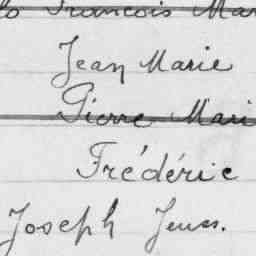 Francois Mar
Jean Marie
Pierre Mari
Frédéric
Joseph